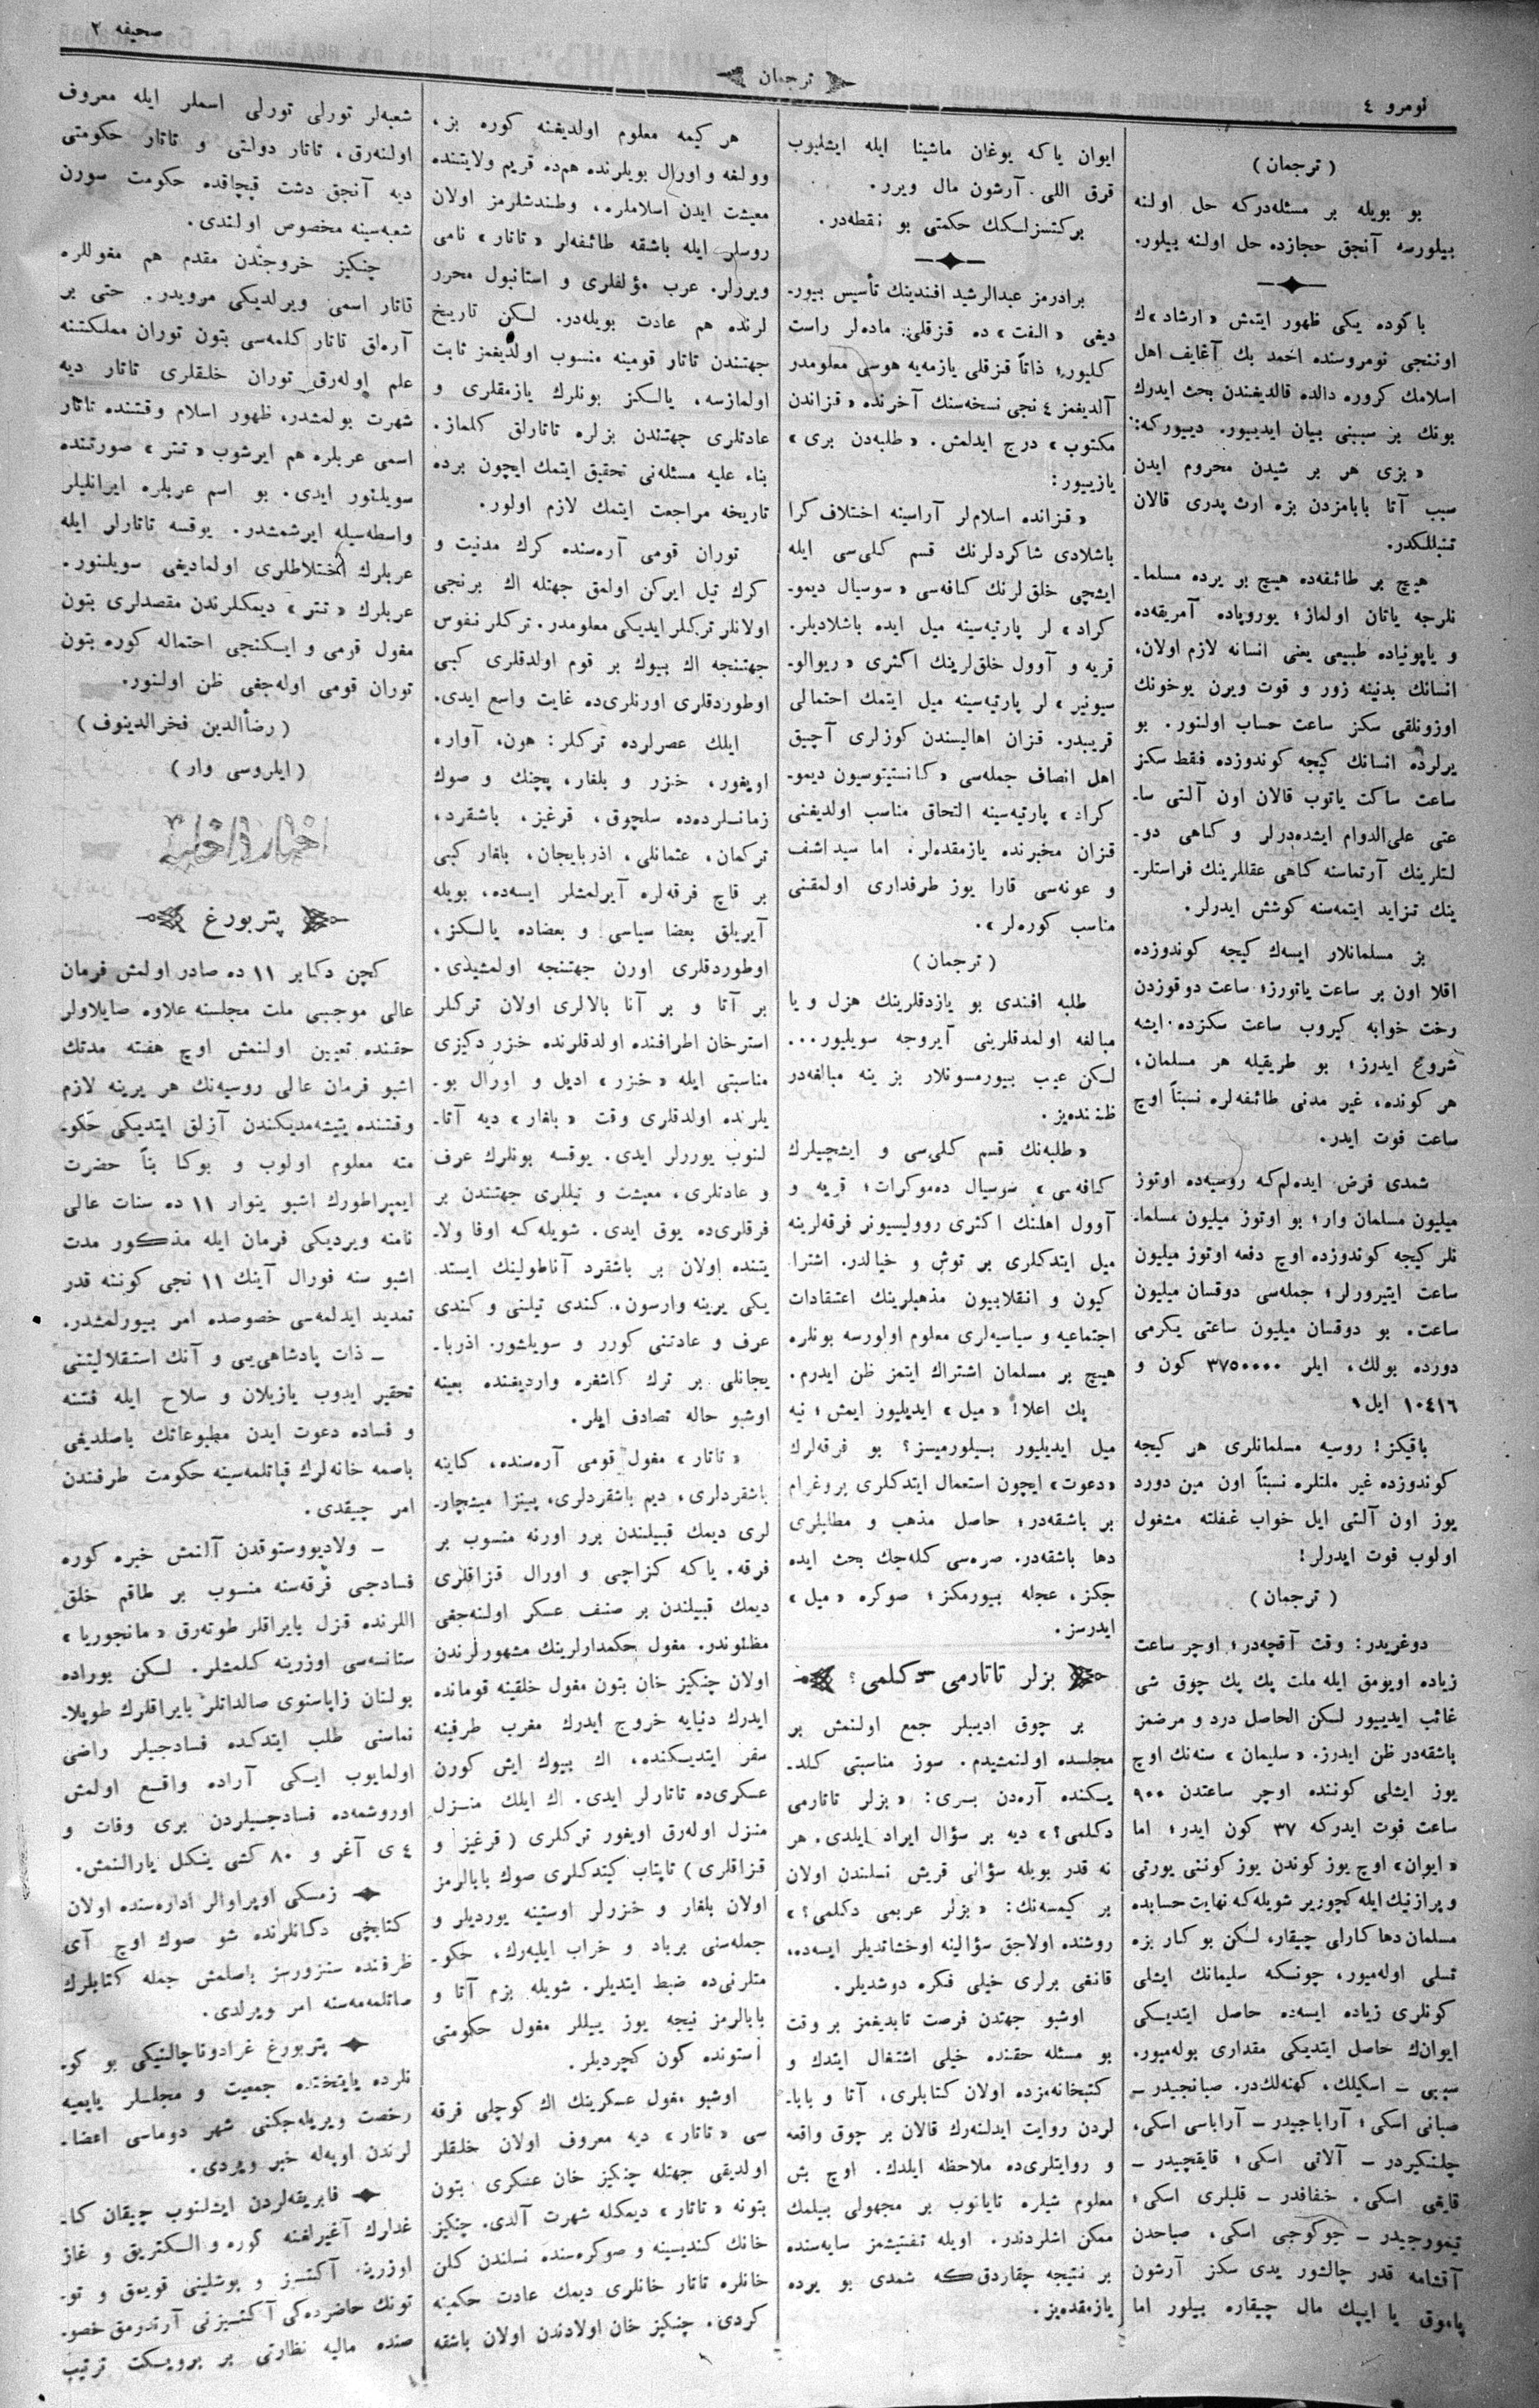 نومرو ٤
ترجمان
صحیفه ٢
( ترجمان )
بو بویله بر مسئله‌درکه حل اولنه
بیلورسه آنجق حجازده حل اولنه بیلور.
باکوده یکی ظهور ایتمش «ارشاد»ك
اوننجی نومروسنده احمد بك آغایف اهل
اسلامك کروره دالده قالدیغندن بحث ایدرك
بونك بز سببنی بیان ایدییور. دییورکه:
« بزی هر بر شیدن محروم ایدن
سبب آتا بابامزدن بزه ارث پدری قالان
تنبللکدر.
هیچ بر طائفه‌ده هیچ بر یرده مسلما-
نلرجه یاتان اولماز؛ یوروپاده آمریقه‌ده
و یاپونیاده طبیعی یعنی انسانه لازم اولان،
انسانك بدنینه زور و قوت ویرن یوخونك
اوزونلقی سکز ساعت حساب اولنور. بو
یرلرده انسانك کیجه کوندوزده فقط سکز
ساعت ساکت یاتوب قالان اون آلتی سا-
عتی علی‌الدوام ایشده‌درلر و کاهی دو-
لتلرینك آرتماسنه کاهی عقللرینك فراستلر-
ینك تزاید ایتمه‌سنه کوشش ایدرلر.
بز مسلمانلار ایسه‌ك کیجه کوندوزده
اقلا اون بر ساعت یاتورز؛ ساعت دوقوزدن
رخت خوابه کیروب ساعت سکزده ایشه
شروع ایدرز؛ بو طریقیله هر مسلمان،
هر کونده، غیر مدنی طائفه‌لره نسبتاً اوچ
ساعت فوت ایدر.
شمدی فرض ایده‌لم‌که روسیه‌ده اوتوز
میلیون مسلمان وار؛ بو اوتوز میلیون مسلما-
نلر کیجه کوندوزده اوچ دفعه اوتوز میلیون
ساعت ایتیرورلر؛ جمله‌سی دوقسان میلیون
ساعت. بو دوقسان میلیون ساعتی یکرمی
دورده بولك، ایلر ٣٧٥٠٠٠٠ کون و
١٠٤١٦ ایل !
باقیکز! روسیه مسلمانلری هر کیجه
کوندوزده غیر ملتلره نسبتاً اون مین دورد
یوز اون آلتی ایل خواب غفلته مشغول
اولوب فوت ایدرلر!
( ترجمان )
دوغریدر: وقت آقچه‌در؛ اوچر ساعت
زیاده اویومق ایله ملت پك پك چوق شی
غائب ایدییور لکن الحاصل درد و مرضمز
باشقه‌در ظن ایدرز. «سلیمان» سنه‌نك اوچ
یوز ایشلی کوننده اوچر ساعتدن ٩٠٠
ساعت فوت ایدرکه ٣٧ کون ایدر؛ اما
«ایوان» اوچ یوز کوندن یوز کوننی یورتی
و پرازنیك ایله کچوزیر شویله‌که نهایت حسابده
مسلمان دها کارلی چیقار، لکن بو کار بزه
تسلی اوله‌میور، چونکه سلیمانك ایشلی
کونلری زیاده ایسه‌ده حاصل ایتدیکی
ایوان‌ك حاصل ایتدیکی مقداری بوله‌میور.
سببی – اسکیلك، کهنه‌لك‌در. صبانجیدر –
صبانی اسکی؛ آراباجیدر – آراباسی اسکی،
چلنکیردر – آلاتی اسکی؛ قایقچیدر –
قایغی اسکی. خفافدر – قلبلری اسکی؛
تیمورجیدر – چوکوجی اسکی، صباحدن
آقشامه قدر چالشور یدی سکز آرشون
پاموق یا ایپك مال چیقاره بیلور اما
ایوان یاکه یوغان ماشینا ایله ایشلیوب
قرق اللی آرشون مال ویرر.
برکتسزلکك حکمتی بو نقطه‌در.
برادرمز عبدالرشید افندینك تأسیس بیور-
دیغی «الفت» ده قزقلی ماده‌لر راست
کلیور؛ ذاتاً قزقلی یازمه‌یه هوسی معلومدر
آلدیغمز ٤ نجی نسخه‌سنك آخرنده «قزاندن
مکتوب» درج ایدلمش. «طلبه‌دن بری»
یازییور:
« قزانده اسلام‌لر آراسینه اختلاف کرا
باشلادی شاکردلرنك قسم کلی‌سی ایله
ایشچی خلق‌لرنك کافه‌سی «سوسیال دیمو-
کراد» لر پارتیه‌سینه میل ایده باشلادیلر.
قریه و آوول خلق‌لرینك اکثری «ریوالو-
سیونیر» لر پارتیه‌سینه میل ایتمك احتمالی
قریبدر. قزان اهالیسندن کوزلری آچیق
اهل انصاف جمله‌سی «کانستیتوسیون دیمو-
کراد» پارتیه‌سینه التحاق مناسب اولدیغنی
قزان مخبرنده یازمقده‌لر. اما سید اشف
و عونه‌سی قارا یوز طرفداری اولمقنی
مناسب کوره‌لر».
( ترجمان )
طلبه افندی بو یازدقلرینك هزل و یا
مبالغه اولمدقلرینی آیروجه سویلیور...
لکن عیب بیورمسونلار بز ینه مبالغه‌در
ظننده‌یز.
«طلبه‌نك قسم کلی‌سی و ایشچیلرك
کافه‌سی» سوسیال ده‌موکرات؛ قریه و
آوول اهلنك اکثری روولیسیونر فرقه‌لرینه
میل ایتدکلری بر توش و خیالدر. اشترا
کیون و انقلابیون مذهبلرینك اعتقادات
اجتماعیه و سیاسیه‌لری معلوم اولورسه بونلره
هیچ بر مسلمان اشتراك ایتمز ظن ایدرم.
پك اعلا! «میل» ایدیلیور ایمش؛ نیه
میل ایدیلیور بیلورمیسز؟ بو فرقه‌لرك
«دعوت» ایچون استعمال ایتدکلری پروغرام
بر باشقه‌در؛ حاصل مذهب و مطالبلری
دها باشقه‌در. صره‌سی کله‌جك بحث ایده
جکز، عجله بیورمکز؛ صوکره «میل»
ایدرسز.
بزلر تاتارمی دکلمی؟
بر چوق ادیبلر جمع اولنمش بر
مجلسده اولنمشیدم. سوز مناسبتی کلد-
یکنده آره‌دن بری: «بزلر تاتارمی
دکلمی؟» دیه بر سؤال ایراد ایلدی. هر
نه قدر بویله سؤالی قریش نسلندن اولان
بر کیمسه‌نك: «بزلر عربمی دکلمی؟»
روشنده اولاجق سؤالینه اوخشاتدیلر ایسه‌ده،
قانغی برلری خیلی فکره دوشدیلر.
اوشبو جهتدن فرصت تابدیغمز بر وقت
بو مسئله حقنده خیلی اشتغال ایتدك و
کتبخانه‌مزده اولان کتابلری، آتا و بابا-
لردن روایت ایدلنه‌رك قالان بر چوق واقعه
و روایتلری‌ده ملاحظه ایلدك. اوچ بش
معلوم شیلره تایانوب بر مجهولی بیلمك
ممکن اشلردندر. اویله تفتیشمز سایه‌سنده
بر نتیجه چقاردق‌که شمدی بو یرده
یازمقده‌یز.
هر کیمه معلوم اولدیغنه کوره بز،
وولغه و اورال بویلرنده هم‌ده قریم ولایتنده
معیشت ایدن اسلاملره، وطنداشلرمز اولان
روسلر ایله باشقه طائفه‌لر «تاتار» نامی
ویررلر. عرب مؤلفلری و استانبول محرر
لرنده هم عادت بویله‌در. لکن تاریخ
جهتندن تاتار قومینه منسوب اولدیغمز ثابت
اولمازسه، یالکز بونلرك یازمقلری و
عادتلری جهتندن بزلره تاتارلق کلماز.
بناء علیه مسئله‌نی تحقیق ایتمك ایچون برده
تاریخه مراجعت ایتمك لازم اولور.
توران قومی آره‌سنده کرك مدنیت و
کرك تیل ایرکن اولمق جهتله اك برنجی
اولانلر ترکلر ایدیکی معلومدر. ترکلر نفوس
جهتنجه اك بیوك بر قوم اولدقلری کبی
اوطوردقلری اورنلری‌ده غایت واسع ایدی.
ایلك عصرلرده ترکلر: هون، آوار،
اویغور، خزر و بلغار، پچنك و صوك
زمانلرده‌ده سلجوق، قرغیز، باشقرد،
ترکمان، عثمانلی، اذربایجان، بلغار کبی
بر قاچ فرقه‌لره آیرلمشلر ایسه‌ده، بویله
آیریلق بعضا سیاسی و بعضاده یالکز،
اوطوردقلری اورن جهتنجه اولمشیدی.
بر آتا و بر آنا بالالری اولان ترکلر
استرخان اطرافنده اولدقلرنده خزر دکیزی
مناسبتی ایله «خزر» ادیل و اورال بو-
یلرنده اولدقلری وقت «بلغار» دیه آتا-
لنوب یوررلر ایدی. یوقسه بونلرك عرف
و عادتلری، معیشت و تیللری جهتندن بر
فرقلری‌ده یوق ایدی. شویله‌که اوفا ولا-
یتنده اولان بر باشقرد آناطولینك ایستد
یکی یرینه وارسون، کندی تیلنی و کندی
عرف و عادتنی کورر و سویلشور. اذربا-
یجانلی بر ترك کاشغره واردیغنده بعینه
اوشبو حاله تصادف ایلر.
«تاتار» مغول قومی آره‌سنده، کاینه
باشقردلری، دیم باشقردلری، پینزا میشچار-
لری دیمك قبیلندن برر اورنه منسوب بر
فرقه، یاکه کزاچی و اورال قزاقلری
دیمك قبیلندن بر صنف عسکر اولنه‌جغی
مظنوندر. مغول حکمدارلرینك مشهورلرندن
اولان چنکیز خان بتون مغول خلقینه قومانده
ایدرك دنیایه خروج ایدرك مغرب طرفینه
سفر ایتدیکنده، اك بیوك ایش کورن
عسکری‌ده تاتارلر ایدی. اك ایلك منزل
منزل اوله‌رق اویغور ترکلری (قرغیز و
قزاقلری) تابتاب کیتدکلری صوك بابالرمز
اولان بلغار و خزرلر اوستینه یوردیلر و
جمله‌سنی برباد و خراب ایلیه‌رك، حکو-
متلرنی‌ده ضبط ایتدیلر. شویله بزم آتا و
بابالرمز نیجه یوز ییللر مغول حکومتی
آستونده کون کچردیلر.
اوشبو مغول عسکرینك اك کوچلی فرقه
سی «تاتار» دیه معروف اولان خلقلر
اولدیقی جهتله چنکیز خان عسکری بتون
بتونه «تاتار» دیمکله شهرت آلدی. چنکیز
خانك کندیسینه و صوکره‌سنده نسلندن کلن
خانلره تاتار خانلری دیمك عادت حکمینه
کردی. چنکیز خان اولادندن اولان باشقه
شعبه‌لر تورلی تورلی اسملر ایله معروف
اولنه‌رق، تاتار دولتی و تاتار حکومتی
دیه آنجق دشت قپچاقده حکومت سورن
شعبه‌سینه مخصوص اولندی.
چنکیز خروجندن مقدم هم مغوللره
تاتار اسمی ویرلدیکی مرویدر. حتی بر
آره‌لق تاتار کلمه‌سی بتون توران مملکتنه
علم اوله‌رق توران خلقلری تاتار دیه
شهرت بولمشدر، ظهور اسلام وقتنده تاتار
اسمی عربلره هم ایرشوب «تتر» صورتنده
سویلنور ایدی. بو اسم عربلره ایرانلیلر
واسطه‌سیله ایرشمشدر. یوقسه تاتارلر ایله
عربلرك اختلاطلری اولمادیغی سویلنور.
عربلرك «تتر» دیمکلرندن مقصدلری بتون
مغول قرمی و ایکنجی احتماله کوره بتون
توران قومی اوله‌جغی ظن اولنور.
( رضأالدین فخرالدینوف )
( ایلروسی وار )
اخبار داخلیه
پتربورغ
کچن دکابر ١١ ده صادر اولمش فرمان
عالی موجبی ملت مجلسنه علاوه صایلاولر
حقنده تعیین اولنمش اوچ هفته مدتك
اشبو فرمان عالی روسیه‌نك هر یرینه لازم
وقتنده یتیشه‌مدیکندن آزلق ایتدیکی حکو-
مته معلوم اولوب و بوکا بناً حضرت
ایمپراطورك اشبو ینوار ١١ ده سنات عالی
نامنه ویردیکی فرمان ایله مذکور مدت
اشبو سنه فورال آینك ١١ نجی کوننه قدر
تمدید ایدلمه‌سی خصوصده امر بیورلمشدر.
– ذات پادشاهی‌یی و آنك استقلالیتنی
تحقیر ایدوب یازیلان و سلاح ایله فتنه
و فساده دعوت ایدن مطبوعاتك باصلدیغی
باصمه خانه‌لرك قپاتلمه‌سینه حکومت طرفندن
امر چیقدی.
– ولادیووستوقدن آلنمش خبره کوره
فسادجی فرقه‌سنه منسوب بر طاقم خلق
اللرنده قزل بایراقلر طوته‌رق «مانجوریا»
ستانسه‌سی اوزرینه کلمشلر. لکن بوراده
بولنان زاپاسنوی صالداتلر بایراقلرك طوپلا-
نماسنی طلب ایتدکده فسادجیلر راضی
اولمایوب ایکی آراده واقع اولمش
اوروشمه‌ده فسادجیلردن بری وفات و
٤ ی آغر و ٨٠ کشی ینکل یارالنمش.
زمسکی اوپراوالر اداره‌سنده اولان
کتابچی دکانلرنده شو صوك اوچ آی
ظرفنده سنزورسز باصلمش جمله کتابلرك
صاتلمه‌مه‌سنه امر ویرلدی.
پتربورغ غرادوناچالنیکی بو کو-
نلرده پایتختده جمعیت و مجلسلر یاپمیه
رخصت ویریله‌جکنی شهر دوماسی اعضا-
لرندن اوبه‌له خبر ویردی.
فابریقه‌لردن ایشلنوب چیقان کا-
غدلرك آغیرلغنه کوره و الکتریق و غاز
اوزرینه آکتسز و بوشلینی قویمق و تو-
تونك حاضرده‌کی آکتسیزنی آرتدرمق خصو-
صنده مالیه نظارتی بر پرویکت ترتیب